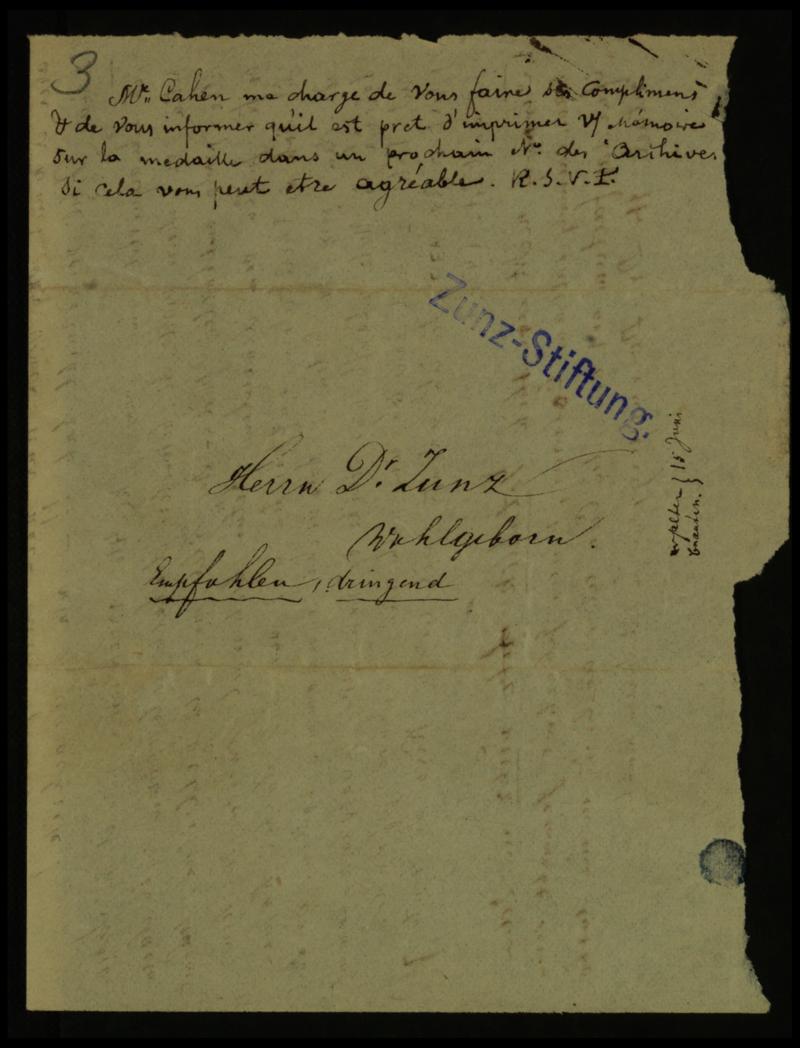 3
Mr. Cahen me charge de Vous faire ses Complimens
& de Vous informer qu'il est pret d'imprimer V/ Mémoire
sur la medaille dans un prochain No. des Archives
Si cela vous peut etre agréable. R. S. V. P.
Zunz-Stiftung.
Herrn Dr. Zunz
Wohlgeborn.
Empfohlen, dringend
15 Juni